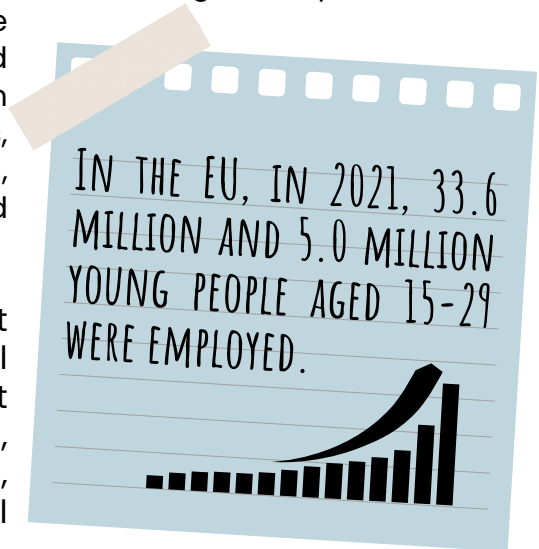 In the EU, in 2021, 33.6
million and 5.0 million
young people aged 15-29
were employed.